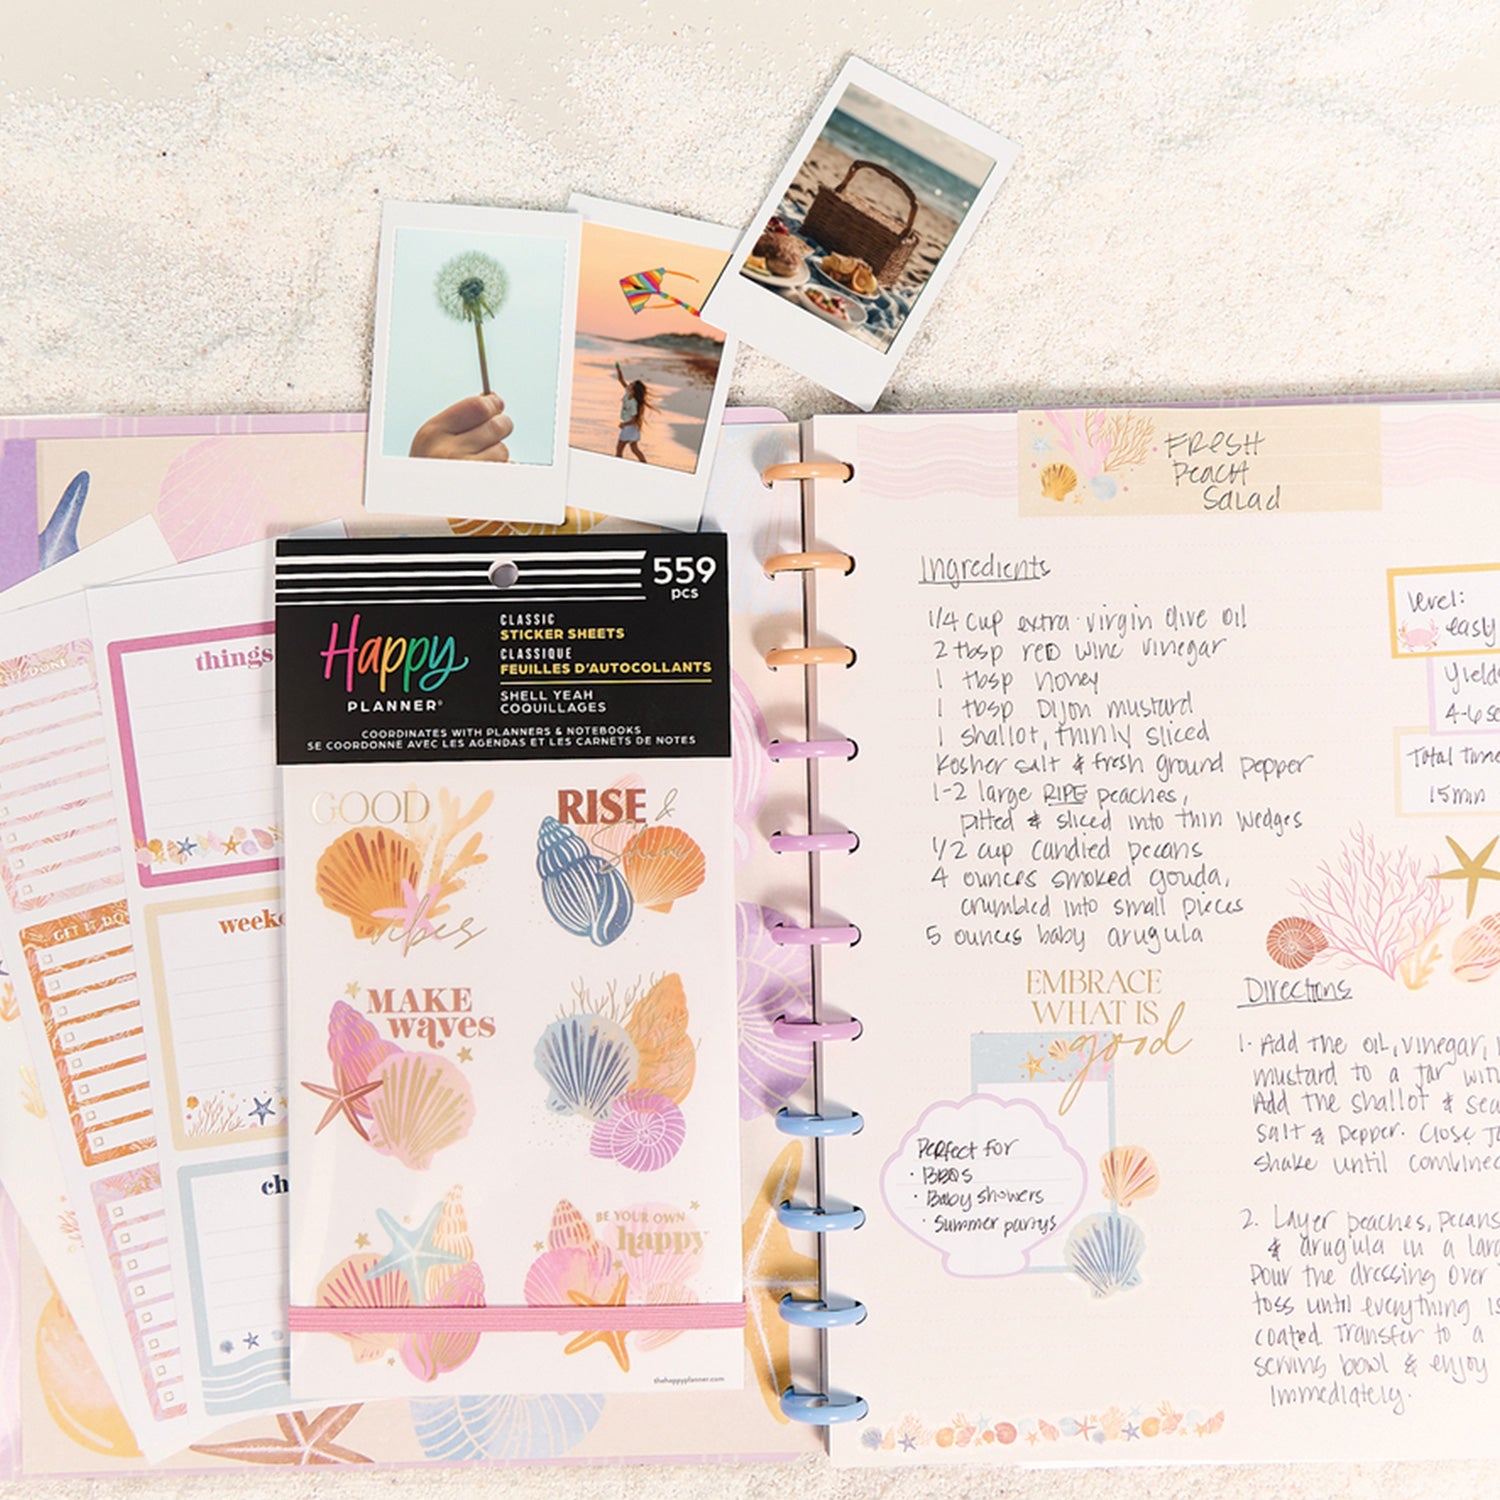 GET IT DONE
things
weeke
ch
559
pcs
Happy
PLANNER®
CLASSIC
STICKER SHEETS
CLASSIQUE
FEUILLES D'AUTOCOLLANTS
SHELL YEAH
COQUILLAGES
COORDINATES WITH PLANNERS & NOTEBOOKS
SE COORDONNE AVEC LES AGENDAS ET LES CARNETS DE NOTES
GOOD
vibes
RISE &
Shine
MAKE
waves
BE YOUR OWN
happy
thehappyplanner.com
FRESH
Peach
Salad
Ingredients
1/4 cup extra-virgin olive oil
2 tbsp red wine vinegar
1 tbsp honey
1 tbsp Dijon mustard
1 shallot, thinly sliced
Kosher salt & fresh ground pepper
1-2 large RIPE peaches,
pitted & sliced into thin wedges
1/2 cup candied pecans
4 ounces smoked gouda,
crumbled into small pieces
5 ounces baby arugula
level:
easy
Yields
4-6 se
Total Time
15 min
EMBRACE
WHAT IS
good
Perfect for
• BBQs
• Baby showers
• Summer partys
Directions
1. Add the oil, vinegar,
mustard to a jar with
Add the shallot & sea
salt & pepper. Close
shake until combined
2. Layer peaches, pecans
& arugula in a larg
Pour the dressing over
toss until everything is
coated. Transfer to a
serving bowl & enjoy
immediately.